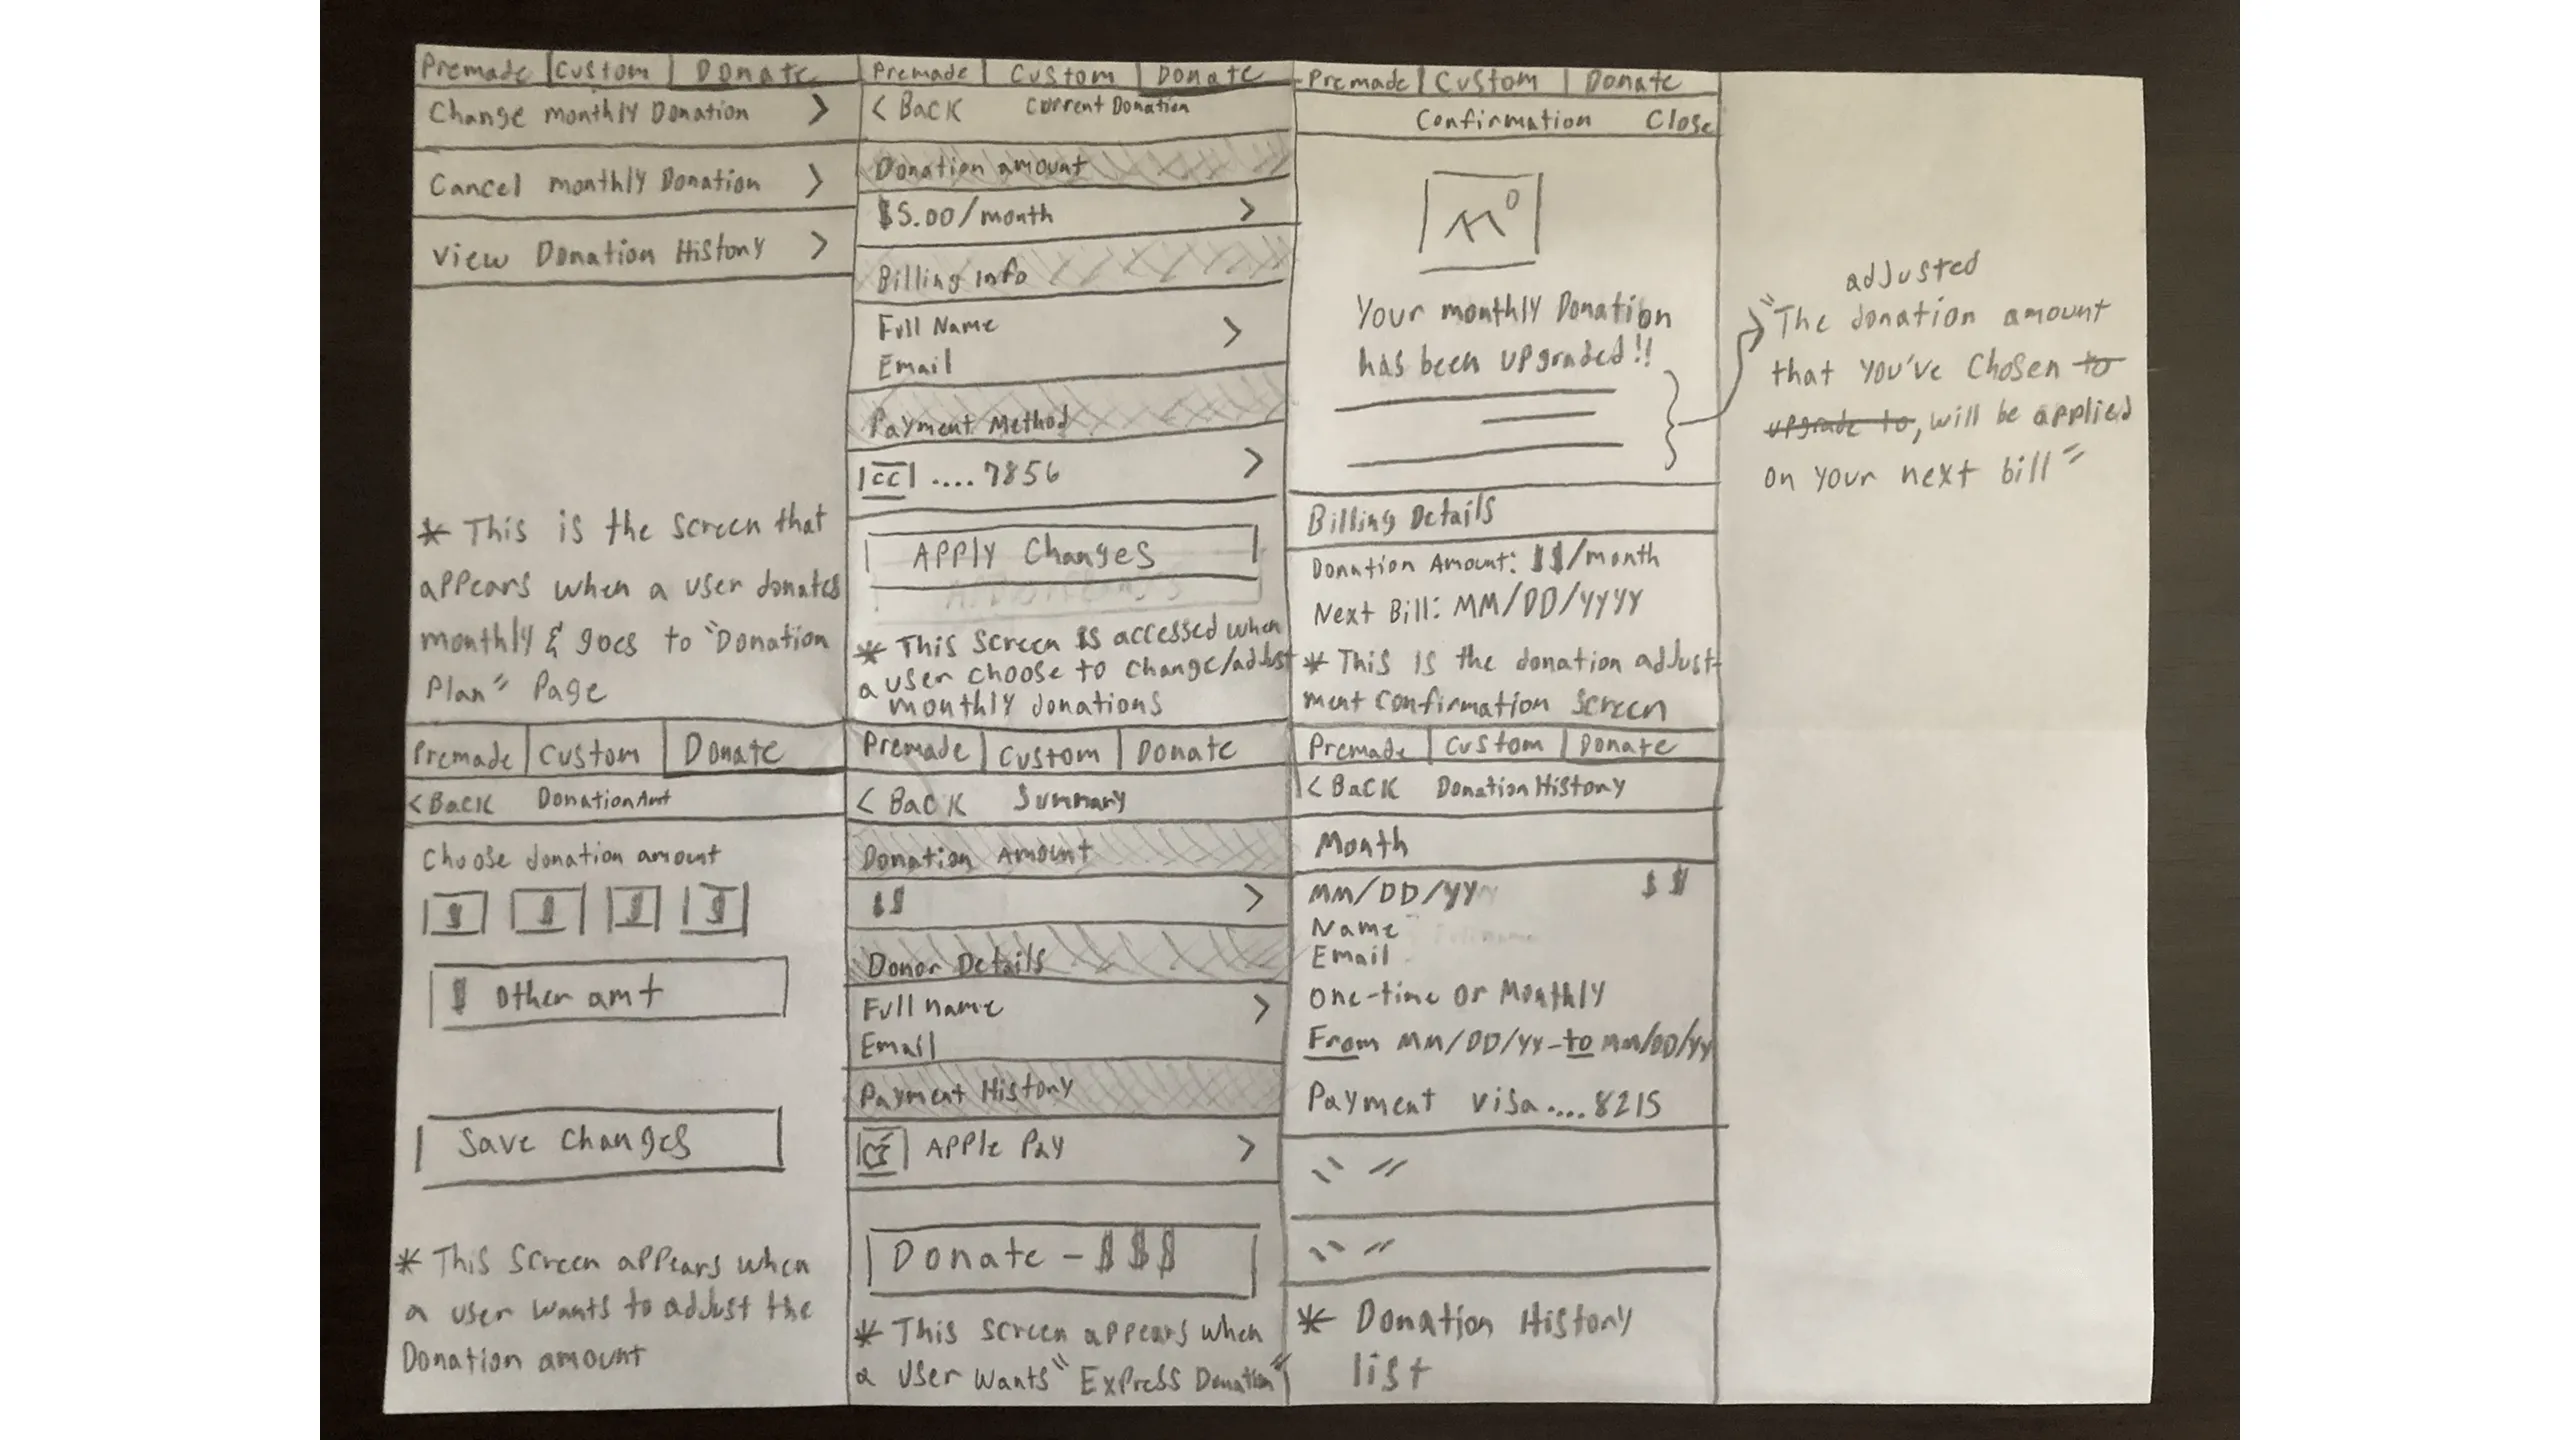 Premade | Custom | Donate
Change monthly Donation >
Cancel monthly Donation >
View Donation History >
* This is the screen that
appears when a user donates
monthly & goes to "Donation
Plan" Page
Premade | Custom | Donate
< Back Current Donation
Donation amount
$5.00/month >
Billing Info
Full Name >
Email
Payment Method
CC ....7856 >
Apply Changes
* This screen is accessed when
a user choose to change/adjust
monthly donations
Premade | Custom | Donate
Confirmation Close
Your monthly Donation
has been upgraded!!
Billing Details
Donation Amount: $$/month
Next Bill: MM/DD/YYYY
* This is the donation adjust-
ment confirmation screen
adjusted
"The donation amount
that you've chosen to
upgrade to, will be applied
on your next bill"
Premade | Custom | Donate
< Back Donation Amt
Choose donation amount
$ $ $ $
$ other amt
Save changes
* This screen appears when
a user wants to adjust the
Donation amount
Premade | Custom | Donate
< Back Summary
Donation Amount
$$ >
Donor Details
Full name >
Email
Payment History
Apple Pay >
Donate - $$$
* This screen appears when
a user wants "Express Donation"
Premade | Custom | Donate
< Back Donation History
Month
MM/DD/YY $$
Name
Email
One-time or Monthly
From MM/DD/YY - to MM/DD/YY
Payment visa....8215
" "
" "
* Donation History
list